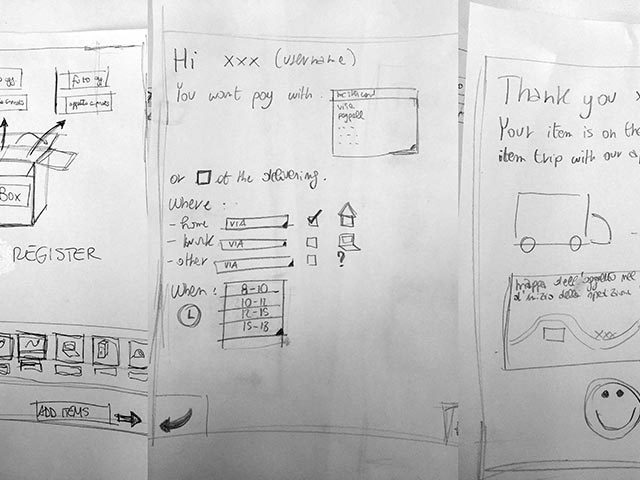 Box
REGISTER
ADD ITEMS
Hi xxx (username)
You want pay with :
visa
paypall
or at the delivering.
Where :
- home VIA
- work VIA
- other VIA ?
When :
8-10
10-12
12-15
15-18
Thank you x
Your item is on the
item trip with our a
mappa dell'oggetto nel
d'inizio della spedizione
xxx